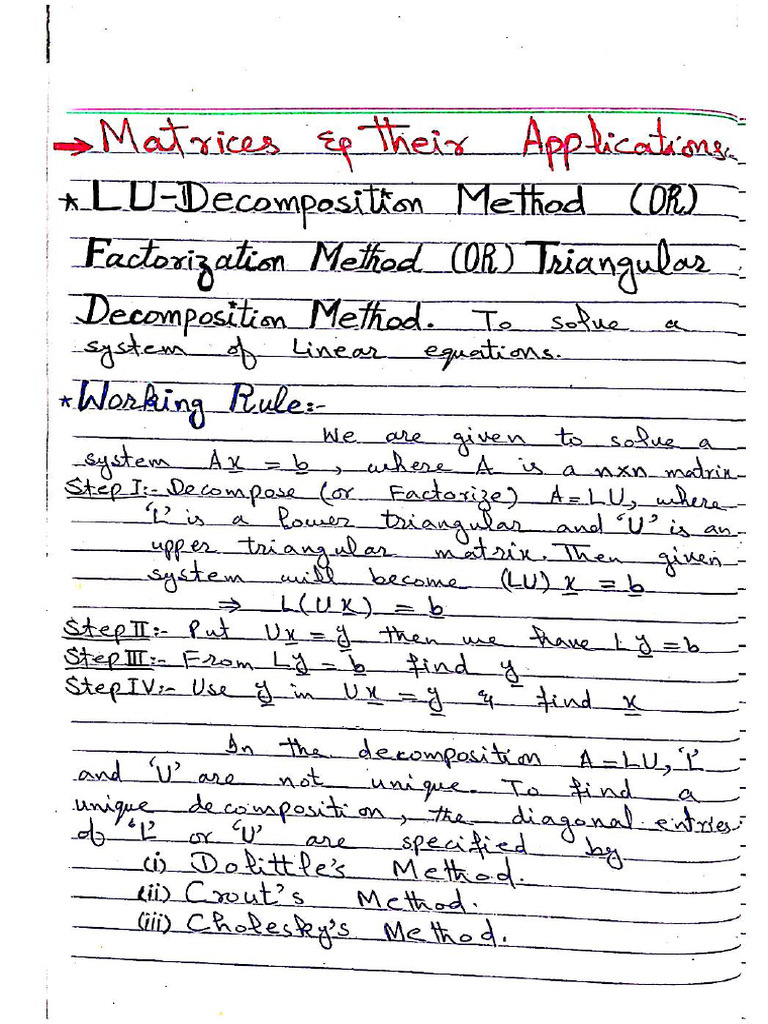 → Matrices & their Applications.
* LU-Decomposition Method (OR)
Factorization Method (OR) Triangular
Decomposition Method. To solve a
system of Linear equations.
* Working Rule:-
We are given to solve a
system Ax = b, where A is a n×n matrix
Step I:- Decompose (or Factorize) A=LU, where
'L' is a lower triangular and 'U' is an
upper triangular matrix. Then given
system will become (LU) x = b
⇒ L(Ux) = b
Step II:- Put Ux = y then we have Ly = b
Step III:- From Ly = b find y
Step IV:- Use y in Ux = y & find x
In the decomposition A=LU, 'L'
and 'U' are not unique. To find a
unique decomposition, the diagonal entries
of 'L' or 'U' are specified by
(i) Dolittle's Method.
(ii) Crout's Method.
(iii) Cholesky's Method.